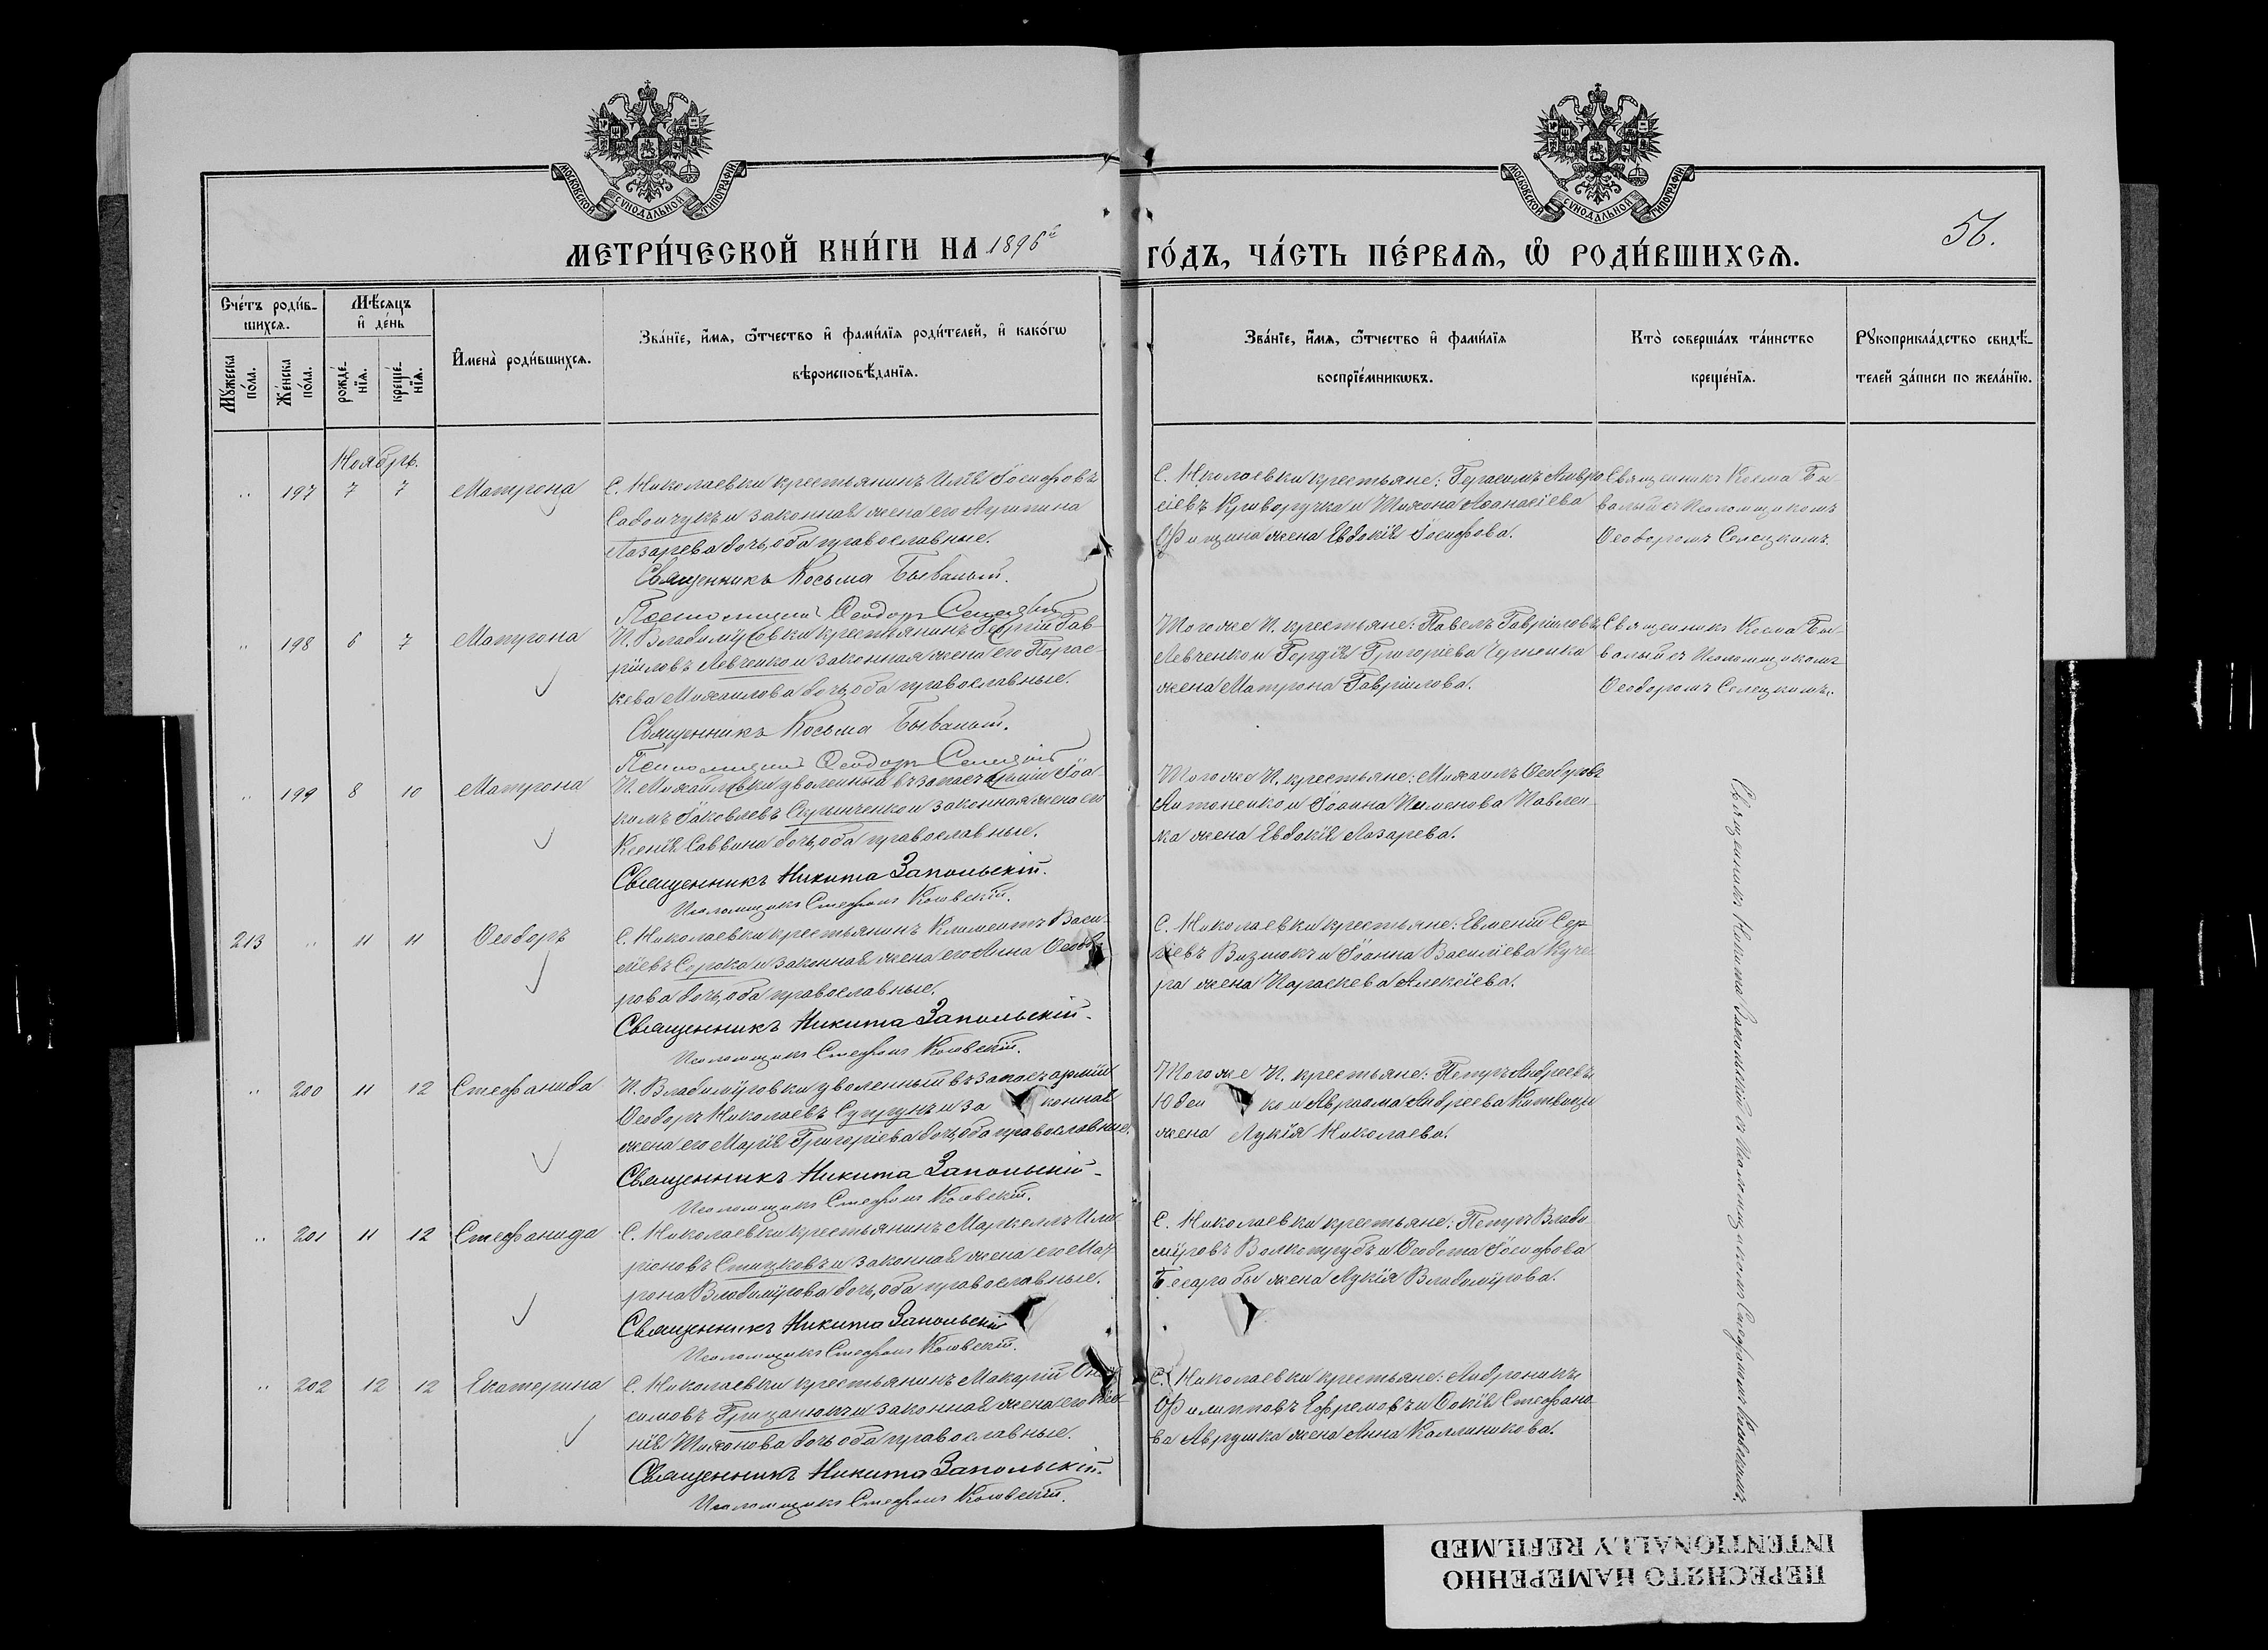 МОСКОВСКОЙ СѴНОДАЛЬНОЙ ТИПОГРАФІИ
МОСКОВСКОЙ СѴНОДАЛЬНОЙ ТИПОГРАФІИ
56.
МЕТРИ́ЧЕСКОЙ КНИ́ГИ НА 1896й
ГО́ДЪ, ЧА́СТЬ ПЕ́РВАѦ, Ѡ҆ РОДИ́ВШИХСѦ.
Сче́тъ роди́в-
шихсѧ.
Мѣ́сѧцъ
и҆ де́нь
Мꙋ́жеска
по́ла.
Же́нска
по́ла.
рожде́-
нїѧ.
креще́-
нїѧ.
И҆мена̀ роди́вшихсѧ.
Зва́нїе, и҆́мѧ, ѻ҆́тчество и҆ фами́лїѧ роди́телей, и҆ како́гѡ
вѣроисповѣ́данїѧ.
Зва́нїе, и҆́мѧ, ѻ҆́тчество и҆ фами́лїѧ
воспрїе́мникѡвъ.
Кто̀ соверша́лъ та́инство
креще́нїѧ.
Рꙋкоприкла́дство свидѣ́-
телей за́писи по жела́нїю.
Ноябрь.
" 197 7 7 Матрона
С. Николаевки крестьянинъ Илія Іосифовъ
Савончукъ и законная жена его Агрипина
Лазарева дочь, оба православные.
Священникъ Косьма Бывалый.
Псаломщикъ Ѳеодоръ Селецкій
С. Николаевки крестьяне: Герасимъ
сіевъ Криворучка и Тихона Аѳанасіева
жена Евдокія Іосифова.
Священникъ Косма Бы-
валый съ Псаломщикомъ
Ѳеодоромъ Селецкимъ.
" 198 6 7 Матрона
П. Владиміровки крестьянинъ Георгій Гав-
ріиловъ Левченко и законная жена его Парас-
кева Михаилова дочь, оба православные.
Священникъ Косьма Бывалый.
Псаломщикъ Ѳеодоръ Селецкій
Того же П. крестьяне: Павелъ Гавріиловъ
Левченко и Гордія Григоріева Черненка
жена Матрона Гавріилова.
Священникъ Косма Бы-
валый съ Псаломщикомъ
Ѳеодоромъ Селецкимъ.
" 199 8 10 Матрона
П. Михайловки уволенный въ запасъ арміи Іоа-
кимъ Іаковлевъ и законная жена его
Ксенія Саввина дочь, оба православные.
Священникъ Никита Запольскій.
Псаломщикъ Стефанъ Косовскій.
Того же П. крестьяне: Михаилъ Ѳеодоровъ
Антоненко и Іоанна Пименова Павлен-
ка жена Евдокія Лазарева.
213 " 11 11 Ѳеодоръ
С. Николаевки крестьянинъ Климентъ Васи-
ліевъ Сорока и законная жена его Анна Ѳеодо-
рова дочь, оба православные.
Священникъ Никита Запольскій.
Псаломщикъ Стефанъ Косовскій.
С. Николаевки крестьяне: Евменій Сер-
гіевъ Визнюкъ и Іоанна Василіева Куче-
ра жена Параскева Алексіева.
" 200 11 12 Стефанида
П. Владиміровки уволенный въ запасъ арміи
Ѳеодоръ Николаевъ Супрунъ и за конная
жена его Марія Григоріева дочь, оба православные.
Священникъ Никита Запольскій.
Псаломщикъ Стефанъ Косовскій.
Того же П. крестьяне: Петръ Андреевъ
Юден ко и Авраама Андреева
жена Лукія Николаева.
" 201 11 12 Стефанида
С. Николаевки крестьянинъ Маркеллъ Ила-
ріоновъ Стицковъ и законная жена его Мат-
рона Владимірова дочь, оба православные.
Священникъ Никита Запольскій
Псаломщикъ Стефанъ Косовскій.
С. Николаевки крестьяне: Петръ Влади-
міровъ Волкотрубъ и Ѳеодота Іосифова
Бесарабы жена Лукія Владимірова.
" 202 12 12 Екатерина
С. Николаевки крестьянинъ Макарій Они-
симовъ Грицанюкъ и законная жена его Ксе-
нія Тихонова дочь оба православные.
Священникъ Никита Запольскій.
Псаломщикъ Стефанъ Косовскій.
С. Николаевки крестьяне: Андроникъ
Филипповъ Ефремовъ и Ѳокія Стефано-
ва Аврушка жена Анна Каллиникова.
Священникъ Никита Запольскій съ Псаломщикомъ Стефаномъ Косовскимъ.
ПЕРЕСНЯТО НАМЕРЕННО
INTENTIONALLY REFILMED